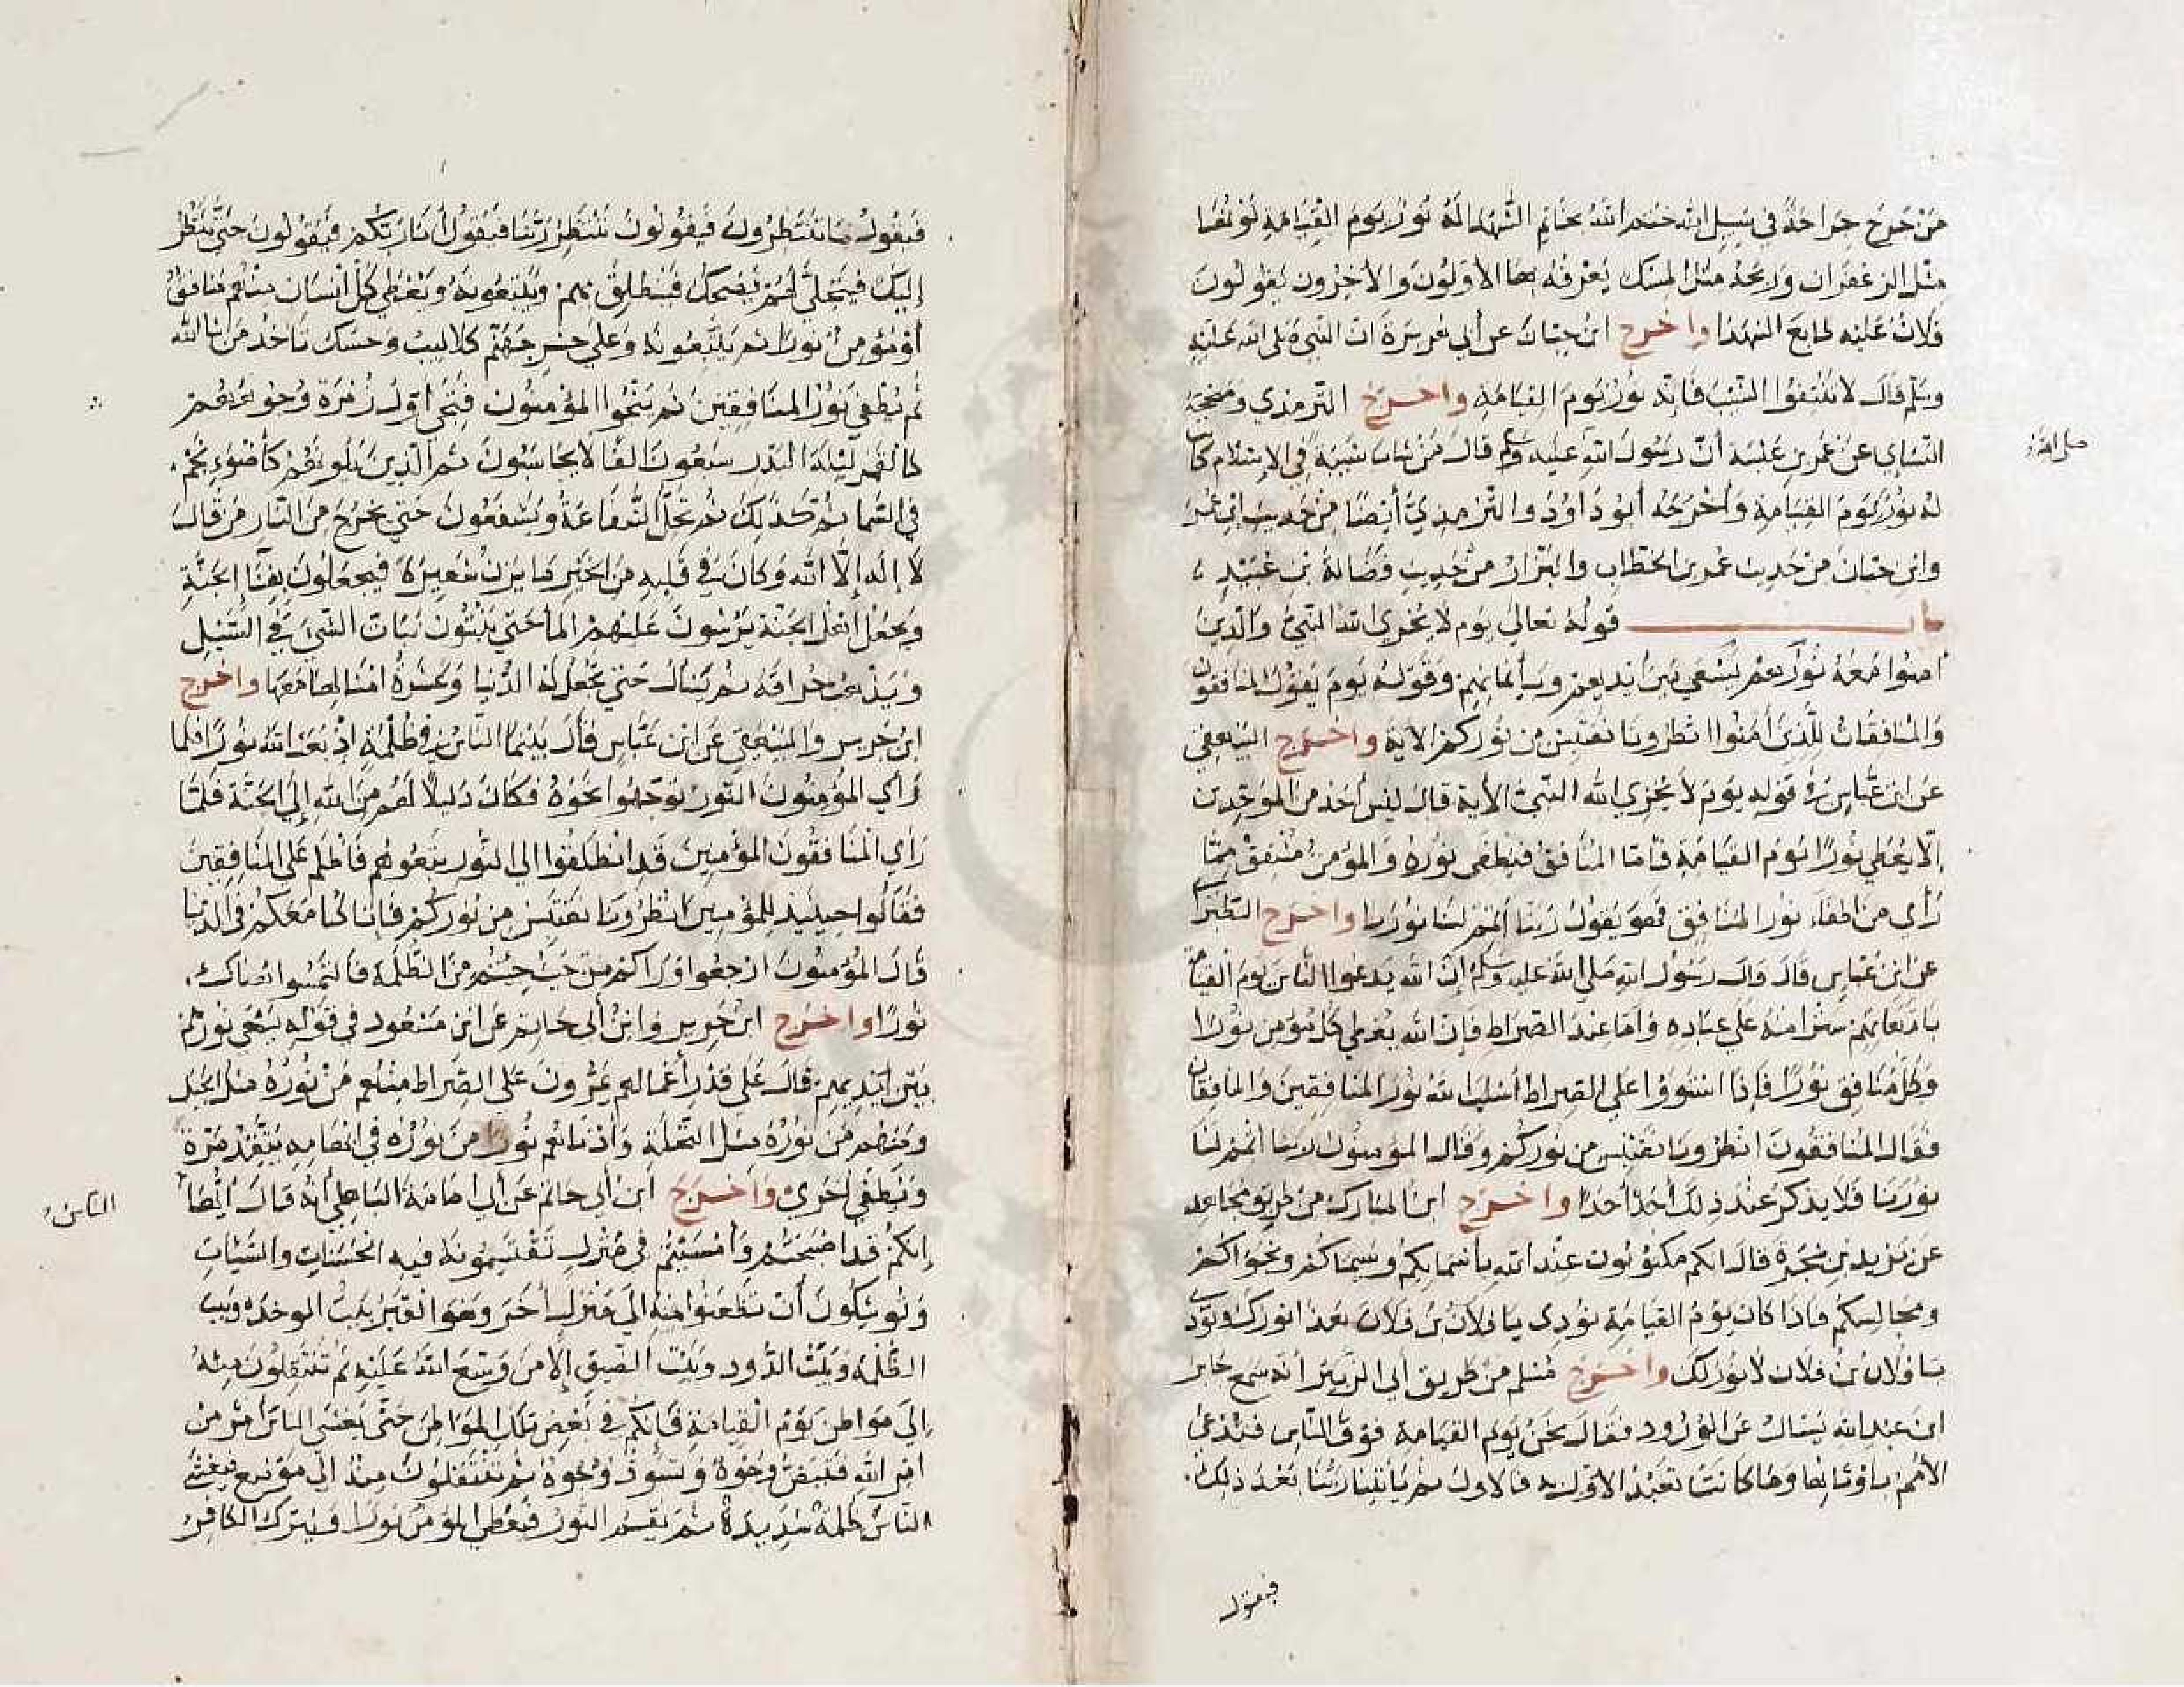 من خرج جراحة في سبيل الله ختم الله بخاتم الشهدا له نور يوم القيامة لونها
مثل الزعفران وريحه مثل المسك يعرفه بها الأولون والآخرون يقولون
فلان عليه طابع الشهدا واخرج ابن حبان عن أبي هريرة ان النبي صلى الله عليه
وسلم قال لا تنتفوا الشيب فانه نور يوم القيامة واخرج الترمذي وصححه
النساي عن عمر بن عبسة أن رسول الله عليه وسلم قال من شاب شيبة في الإسلام كان
صلى الله
له نور يوم القيامة وأخرجه أبو داود والترمذي أيضا من حديث ابن عمر
وابن حبان من حديث عمر بن الخطاب والبزار من حديث فضالة بن عبيد
باب قوله تعالى يوم لا يخزي الله النبي والذين
امنوا معه نورهم يسعى بين أيديهم وبأيمانهم وقوله يوم يقول المنافقون
والمنافقات للذين أمنوا انظرونا نقتبس من نوركم الاية واخرج البيهقي
عن ابن عباس في قوله يوم لا يخزي الله النبي الأية قال ليس أحد من الموحدين
إلا يعطى نورا يوم القيامة فأما المنافق فيطفى نوره والمؤمن مشفق مما
رأى من اطفاء نور المنافق فهو يقول ربنا أتمم لنا نورنا واخرج الطبراني
عن ابن عباس قال قال رسول الله صلى الله عليه وسلم إن الله يدعوا الناس يوم القيامة
بامهاتهم سترا منه على عباده وأما عند الصراط فإن الله يعطي كل مؤمن نورا
وكل منافق نورا فإذا استووا على الصراط أسلب الله نور المنافقين والمنافقات
فقال المنافقون انظرونا نقتبس من نوركم وقال المؤمنون ربنا اتمم لنا
نورنا فلا يذكر عند ذلك أحدا أحدا واخرج ابن المبارك من طريق مجاهد
عن يزيد بن شجرة قال انكم مكتوبون عند الله بأسمايكم وسيماكم ونجواكم
ومجالسكم فاذا كان يوم القيامة نودي يا فلان بن فلان هذا نورك ونودي
يا فلان بن فلان لا نور لك واخرج مسلم من طريق أبي الزبير انه سمع جابر
ابن عبد الله يسال عن الورود فقال نحن يوم القيامة فوق الناس فتدعى
الأمم باوثانها وما كانت تعبد الاول فالاول ثم يأتينا ربنا بعد ذلك
فيقول
فيقول ما تنتظرون فيقولون ننتظر ربنا فيقول أنا ربكم فيقولون حتى ننظر
إليك فيتجلى لهم يضحك فينطلق بهم ويتبعونه ويعطي كل انسان منهم منافق
أو مؤمن نورا ثم يتبعونه وعلى جسر جهنم كلاليب وحسك تاخذ من شا الله
ثم يطفي نور المنافقين ثم ينجوا المؤمنون فينجي اول زمرة وجوههم
كالقمر ليلة البدر سبعون الفا لا يحاسبون ثم الذين يلونهم كأضوء نجم
في السما ثم كذلك ثم تحل الشفاعة ويشفعون حتى يخرج من النار من قال
لا إله إلا الله وكان في قلبه من الخير ما يزن شعيرة فيجعلون بفنا الجنة
ويجعل اهل الجنة يرشون عليهم الما حتى ينبتون نبات الشي في السيل
ويذهب حراقه ثم يسال حتى تجعل له الدنيا وعشرة امثالها معها واخرج
ابن جرير والبيهقي عن ابن عباس قال بينما الناس في ظلمة إذ بعث الله نورا فلما
رأى المؤمنون النور توجهوا نحوه فكان دليلا لهم من الله إلى الجنة فلما
رأى المنافقون المؤمنين قد انطلقوا الى النور تبعوهم فأظلم على المنافقين
فقالوا حينيذ للمؤمنين انظرونا نقتبس من نوركم فإنا كنا معكم في الدنيا
قال المؤمنون ارجعوا وراكم من حيث جئتم من الظلمة فالتمسوا هناك
نورا واخرج ابن جرير وابن أبي حاتم عن ابن مسعود في قوله يسعى نورهم
بين أيديهم قال على قدر أعمالهم يمرون على الصراط منهم من نوره مثل الجبل
ومنهم من نوره مثل النخلة وأدناهم نورا من نوره في ابهامه يتقد مرة
ويطفي اخرى وأخرج ابن أبي حاتم عن أبي امامة الباهلي أنه قال أيها
الناس
إنكم قد اصبحتم وأمسيتم في منزل تقتسمون فيه الحسنات والسيات
وتوشكون أن تظعنوا منه إلى منزل اخر وهو القبر بيت الوحدة وبيت
الظلمة وبيت الدود وبيت الضيق إلا من وسع الله عليه ثم تنتقلون منه
إلى مواطن يوم القيامة فإنكم في بعض تلك المواطن حتى يغشى الناس أمر من
امر الله فتبيض وجوه وتسود وجوه ثم تنتقلون منه الى موضع فيغشى
الناس ظلمة شديدة ثم يقسم النور فيعطى المؤمن نورا ويترك الكافر